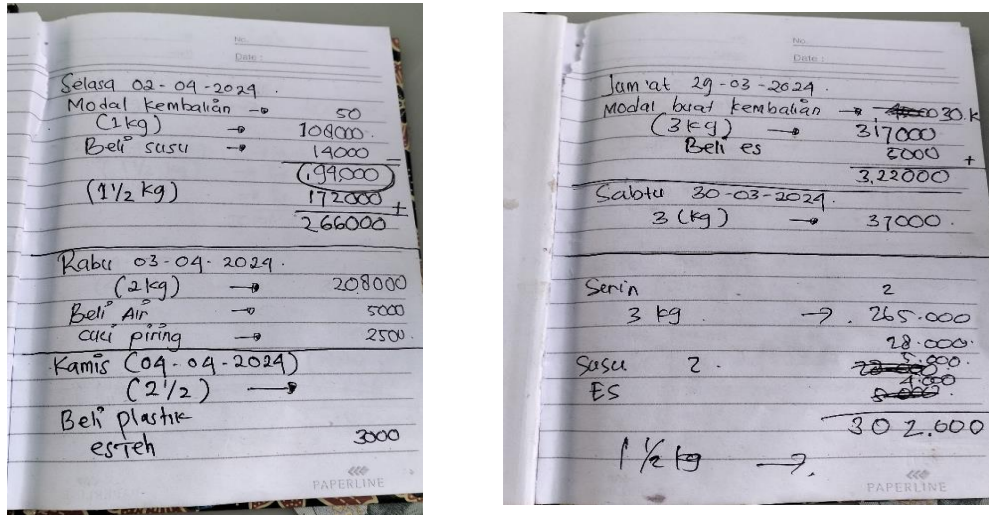 No.
Date :
Selasa 02-04-2024.
Modal kembalian → 50
(1kg) → 108000.
Beli susu → 14000 -
94000
(1 1/2 kg) 172000 +
266000
Rabu 03-04-2024.
(2kg) → 208000
Beli Air → 5000
cuci piring → 2500.
Kamis (04-04-2024)
(2 1/2) →
Beli plastik
es Teh 3000
PAPERLINE
No.
Date :
Jam'at 29-03-2024.
Modal buat kembalian → 30.k
(3kg) → 317000
Beli es 5000 +
3,22000
Sabtu 30-03-2024.
3 (kg) → 37000.
Senin 2
3 kg. → . 265.000
28.000.
Susu 2. 5.000.
ES 4.000
302.000
1 1/2 kg →.
PAPERLINE